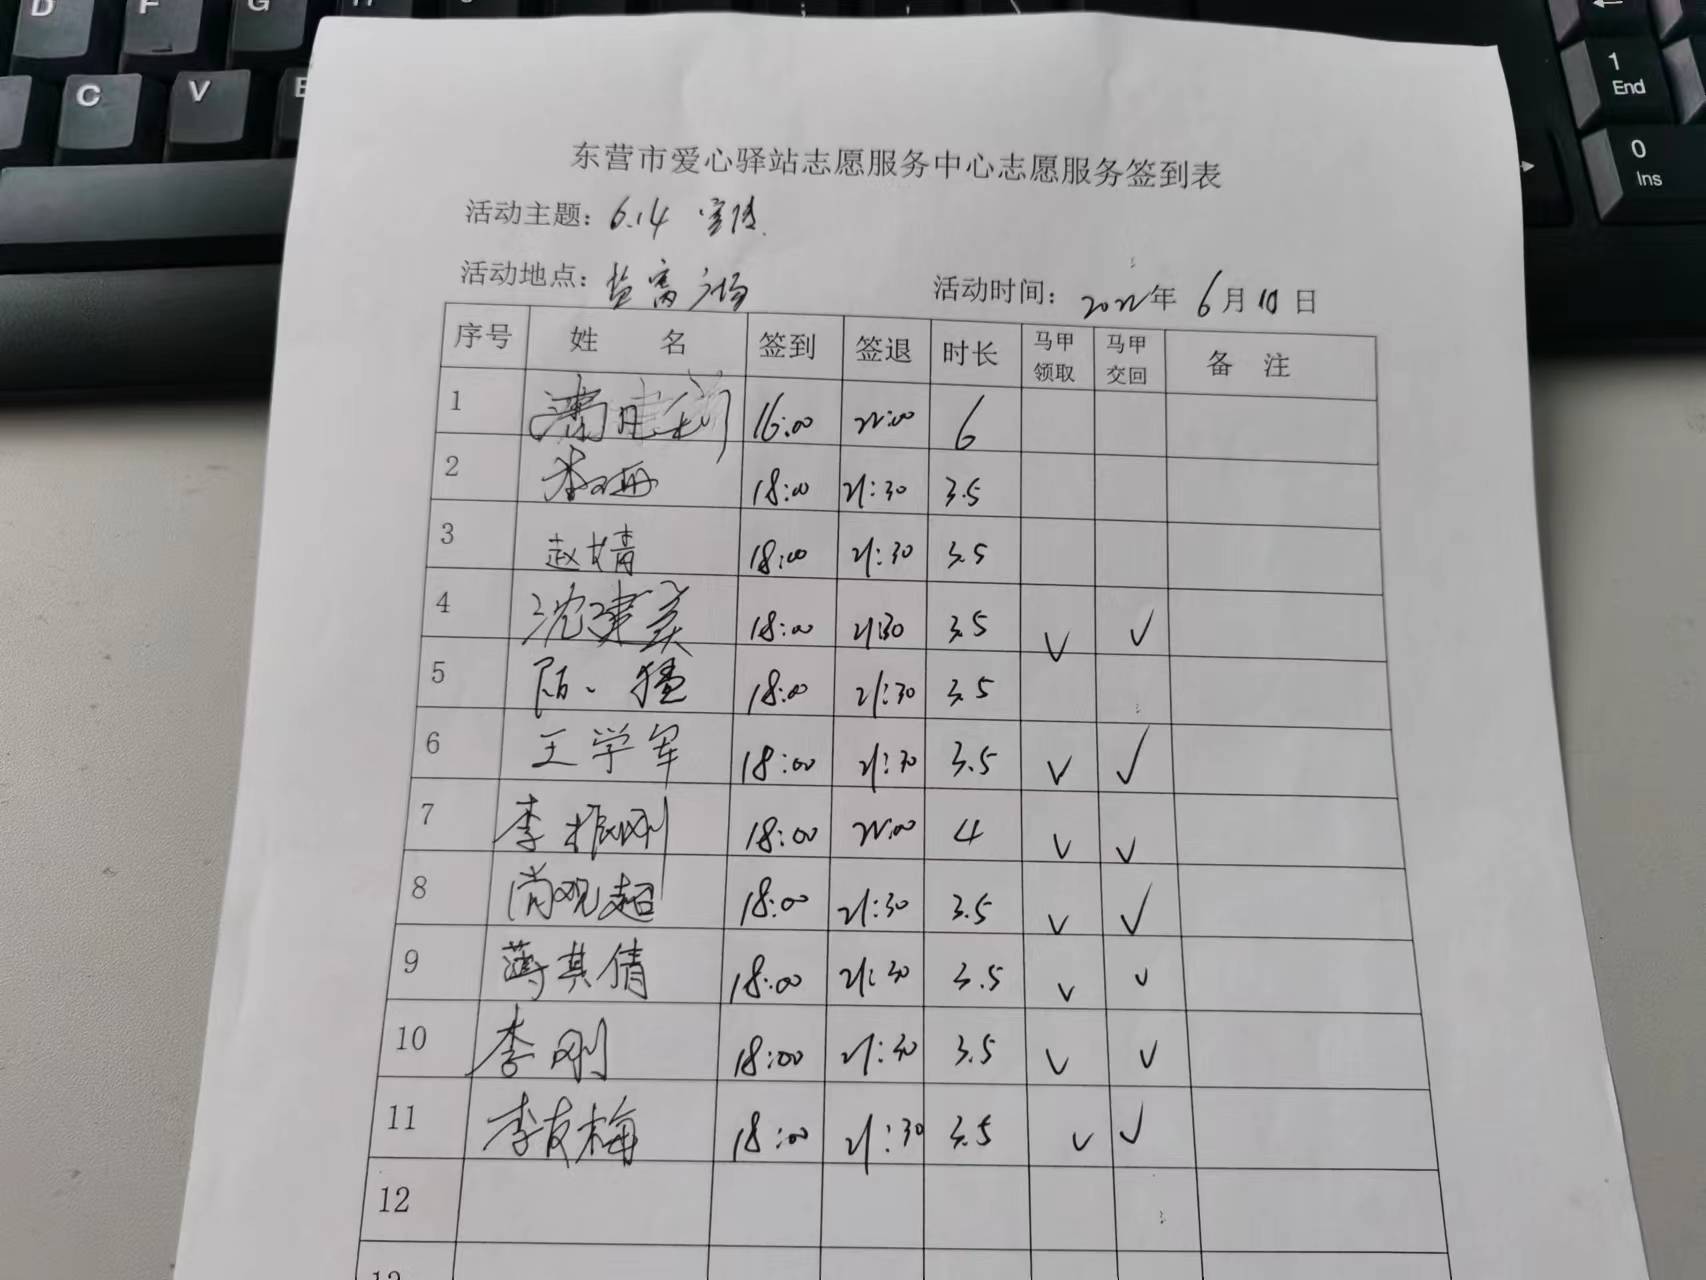 D F G H
C V B
1 End
0 Ins
东营市爱心驿站志愿服务中心志愿服务签到表
活动主题: 6.14 宣传
活动地点: 广场 活动时间: 2022年 6月10日
序号 姓 名 签到 签退 时长 马甲领取 马甲交回 备 注
1 16:00 22:00 6
2 李 18:00 21:30 3.5
3 赵婧 18:00 21:30 3.5
4 沈建英 18:00 21:30 3.5 ✓ ✓
5 陈 18:00 21:30 3.5
6 王学军 18:00 21:30 3.5 ✓ ✓
7 李振刚 18:00 22:00 4 ✓ ✓
8 尚观超 18:00 21:30 3.5 ✓ ✓
9 薄其倩 18:00 21:30 3.5 ✓ ✓
10 李刚 18:00 21:30 3.5 ✓ ✓
11 李友梅 18:00 21:30 3.5 ✓ ✓
12
13